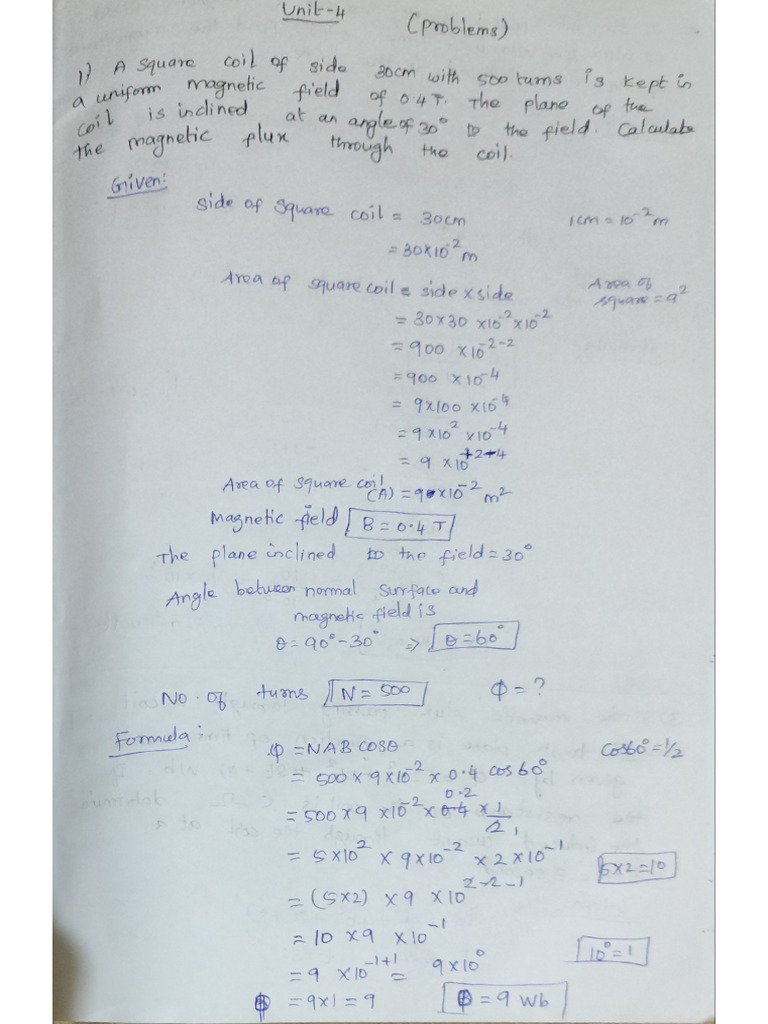 Unit-4
(Problems)
1) A square coil of side 30cm with 500 turns is kept in
a uniform magnetic field of 0.4T. The plane of the
coil is inclined at an angle of 30° to the field. Calculate
the magnetic flux through the coil.
Given:
side of square coil = 30cm 1cm = 10⁻² m
= 30×10⁻² m
Area of square coil = side × side Area of square = a²
= 30×30 ×10⁻²×10⁻²
= 900 ×10⁻²⁻²
= 900 ×10⁻⁴
= 9×100 ×10⁻⁴
= 9×10² ×10⁻⁴
= 9 ×10⁺²⁻⁴
Area of square coil (A) = 9×10⁻² m²
Magnetic field B = 0.4 T
The plane inclined to the field = 30°
Angle between normal surface and
magnetic field is
θ = 90° - 30° ⇒ θ = 60°
No. of turns N = 500 Φ = ?
Formula:
Φ = NAB COSθ Cos60° = 1/2
= 500 × 9×10⁻² × 0.4 cos 60°
0.2
= 500 × 9 ×10⁻² × 0.4 × 1/2 1
= 5×10² × 9×10⁻² × 2×10⁻¹ 5×2=10
= (5×2) × 9 ×10²⁻²⁻¹
= 10 × 9 ×10⁻¹
= 9 ×10⁻¹⁺¹ = 9×10⁰ 10⁰=1
Φ = 9×1 = 9 Φ = 9 Wb